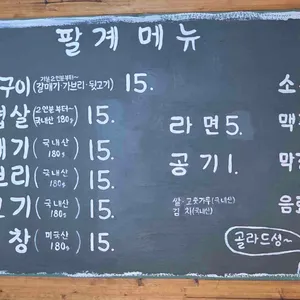 팔계메뉴
구이 (기본2인분부터~ 갈매기·가브리·뒷고기) 15.
겹살 (2인분부터~ 국내산 180g) 15.
매기 (국내산 180g) 15.
브리 (국내산 180g) 15.
고기 (국내산 180g) 15.
창 (미국산 180g) 15.
라면 5.
공기 1.
쌀·고춧가루(국내산)
김치(국내산)
소
맥
막
음
골라드셩~